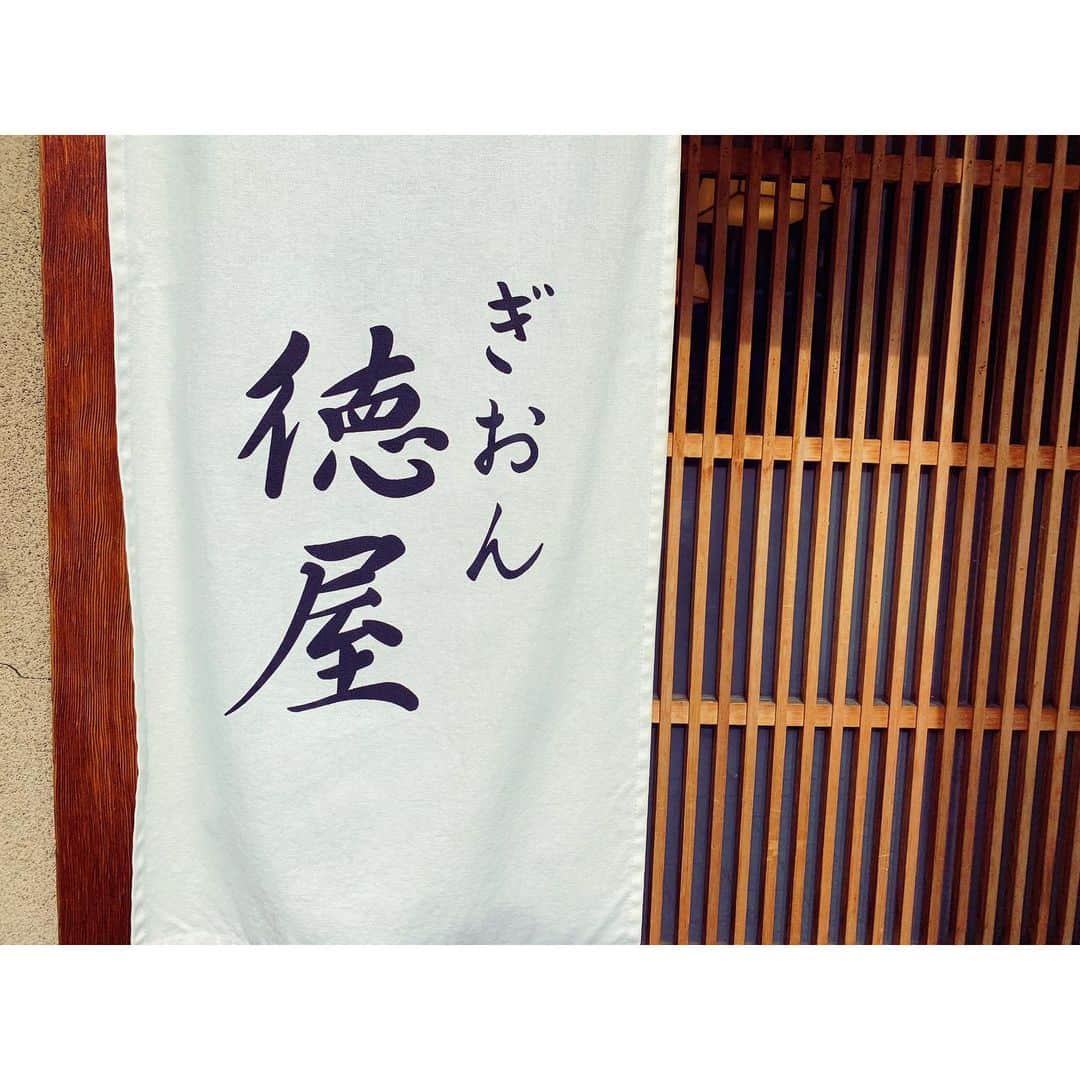 ぎおん
徳屋